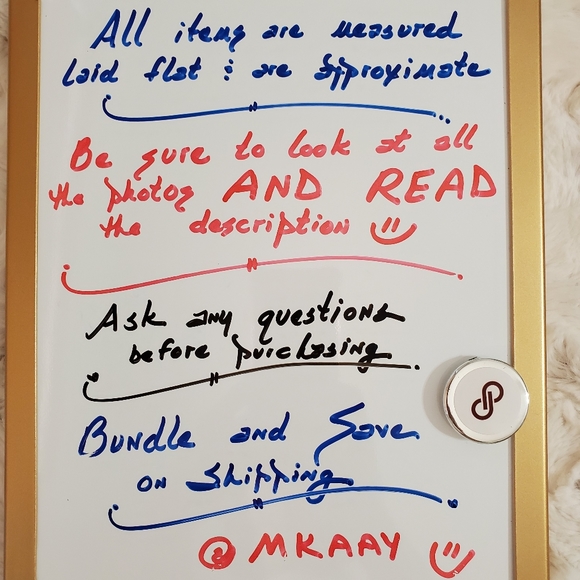 All items are measured
laid flat & are approximate
Be sure to look at all
the photos AND READ
the description
Ask any questions
before purchasing
Bundle and Save
on Shipping
@ MKAAY